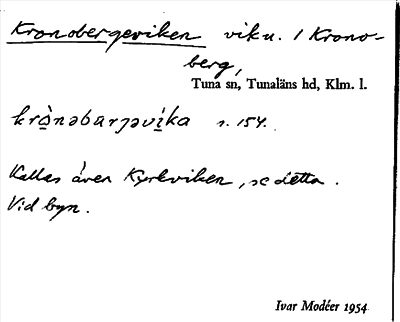 Kronobergsviken vik u. / Krono-
berg,
Tuna sn, Tunaläns hd, Klm. l.
krò̀nəbarjəvi̱ka s. 154.
Kallas även Kyrkviken, se detta.
Vid byn.
Ivar Modéer 1954